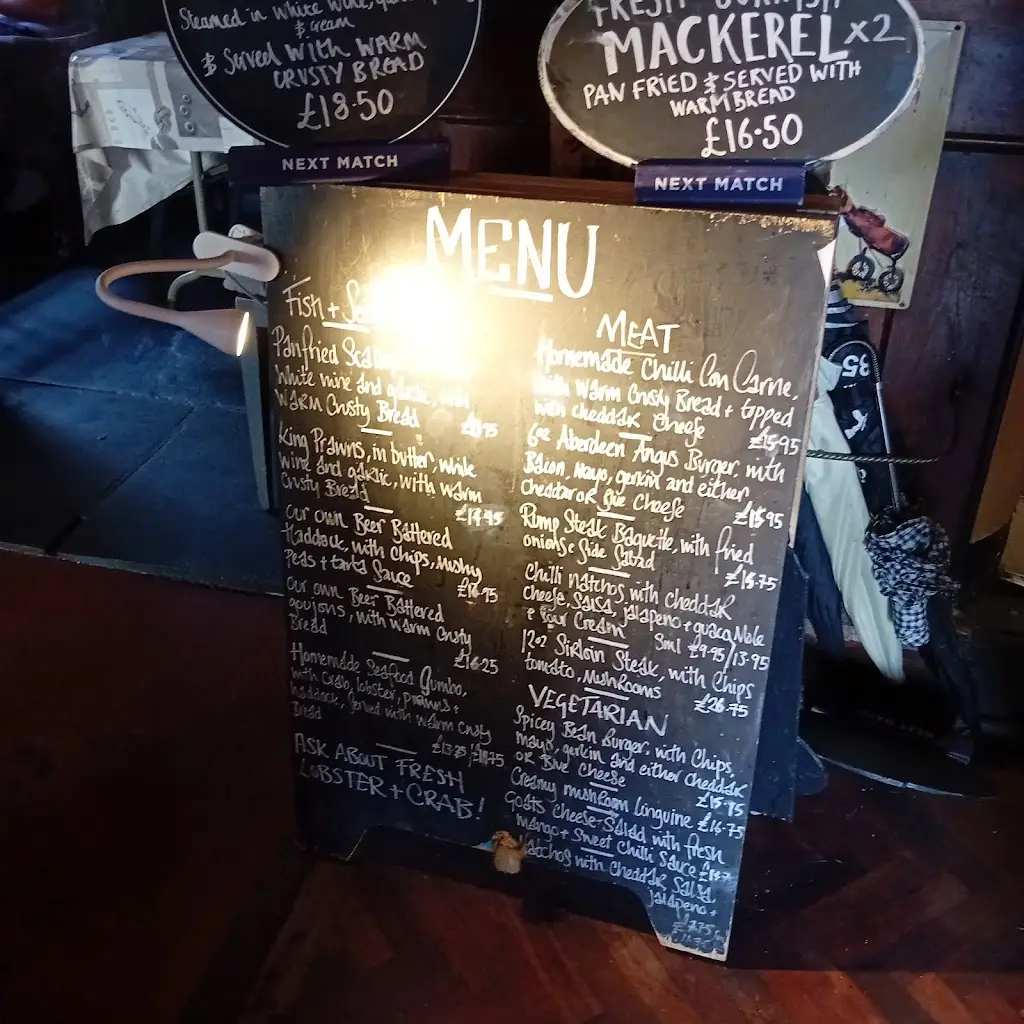 Steamed in White Wine,
& Cream
& Served WITH WARM
CRUSTY BREAD
£18.50
NEXT MATCH
FRESH CORNISH
MACKEREL x2
PAN FRIED & SERVED WITH
WARM BREAD
£16.50
NEXT MATCH
MENU
Fish +
Panfried
White wine and garlic, with
WARM Crusty Bread
King Prawns, in butter, white
wine and garlic, with warm
Crusty Bread
our own Beer Battered
Haddock, with Chips, Mushy
Peas + tarta Sauce
our own Beer Battered
goujons, with warm Crusty
Bread
£16.25
Homemade Seafood Gumbo,
with Crab, lobster, prawns +
haddock, Served with warm Crusty
Bread
ASK ABOUT FRESH
LOBSTER + CRAB!
MEAT
Homemade Chilli Con Carne,
with warm Crusty Bread + topped
with cheddar Cheese
£15.95
6oz Aberdeen Angus Burger, with
Bacon, mayo, gerkin and either
Cheddar OR Blue Cheese
£15.95
Rump Steak Baguette, with fried
onions & Side Salad
Chilli natchos with Cheddar
Cheese, Salsa, jalapeno + guacamole
+ Sour Cream Sml £9.95/13.95
12oz Sirloin Steak, with Chips
tomato, Mushrooms
£26.75
VEGETARIAN
Spicey Bean Burger, with Chips,
mayo, gerkin and either cheddar
OR Blue Cheese
£15.95
Creamy mushroom Linguine £16.75
Goats Cheese Salad with fresh
mango + Sweet Chilli Sauce
Natchos with Cheddar Salsa,
jalapeno +
35